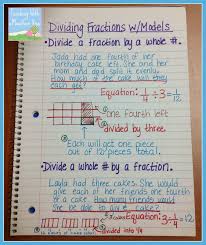 Teaching With a Mountain View
Dividing Fractions w/Models
• Divide a fraction by a whole #.
Jada had one fourth of her
birthday cake left. She and her
mom and dad split it evenly.
How much of the cake will they
each get?
Equation: 1/4 ÷ 3 = 1/12
one fourth left
divided by three
Each will get one piece
out of 12 pieces total.
• Divide a whole # by a fraction.
Layla had three cakes. She would
give each of her friends one fourth
of a cake. How many friends would
she be able to give cake?
Equation: 3 ÷ 1/4 = 12
divided into 1/4